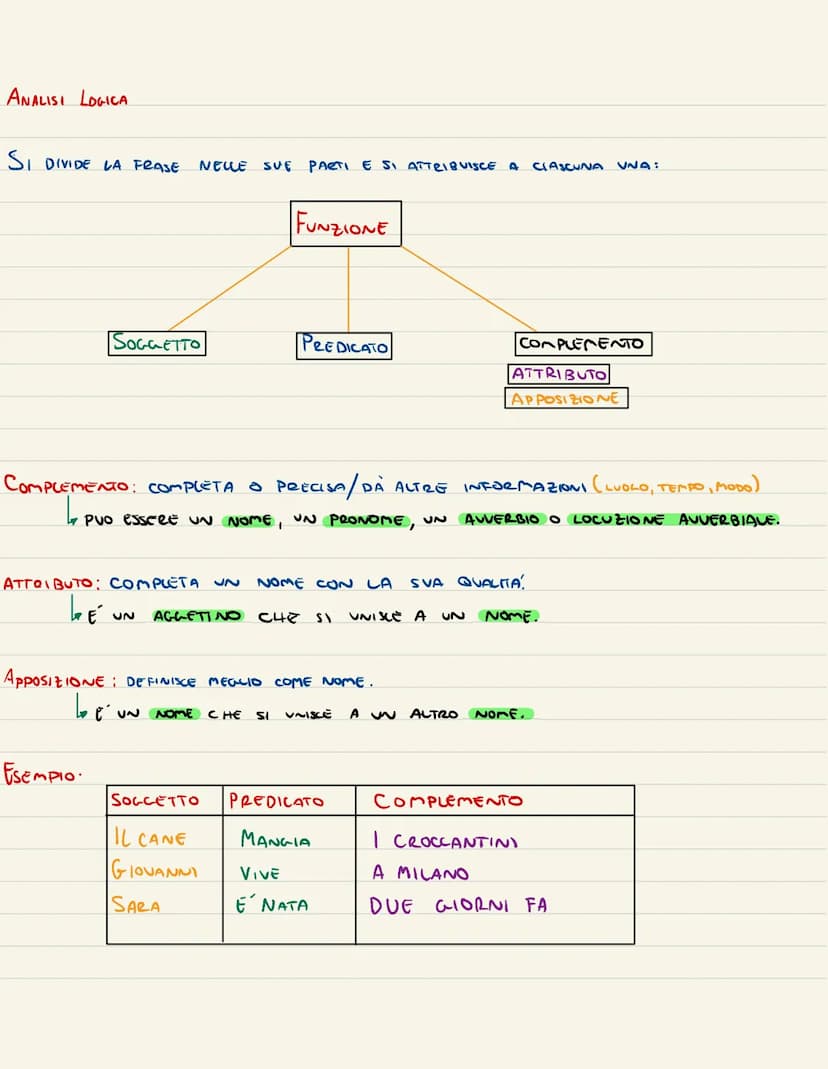 ANALISI LOGICA
SI DIVIDE LA FRASE NELLE SUE PARTI E SI ATTRIBUISCE A CIASCUNA UNA:
FUNZIONE
SOGGETTO PREDICATO COMPLEMENTO
ATTRIBUTO
APPOSIZIONE
COMPLEMENTO: COMPLETA O PRECISA/DÀ ALTRE INFORMAZIONI (LUOGO, TEMPO, MODO)
PUO ESSERE UN NOME, UN PRONOME, UN AVVERBIO O LOCUZIONE AVVERBIALE.
ATTRIBUTO: COMPLETA UN NOME CON LA SUA QUALITÁ.
E´ UN AGGETIVO CHE SI UNISCE A UN NOME.
APPOSIZIONE: DEFINISCE MEGLIO COME NOME.
E´ UN NOME CHE SI UNISCE A UN ALTRO NOME.
ESEMPIO.
SOGGETTO PREDICATO COMPLEMENTO
IL CANE MANGIA I CROCCANTINI
GIOVANNI VIVE A MILANO
SARA E´ NATA DUE GIORNI FA